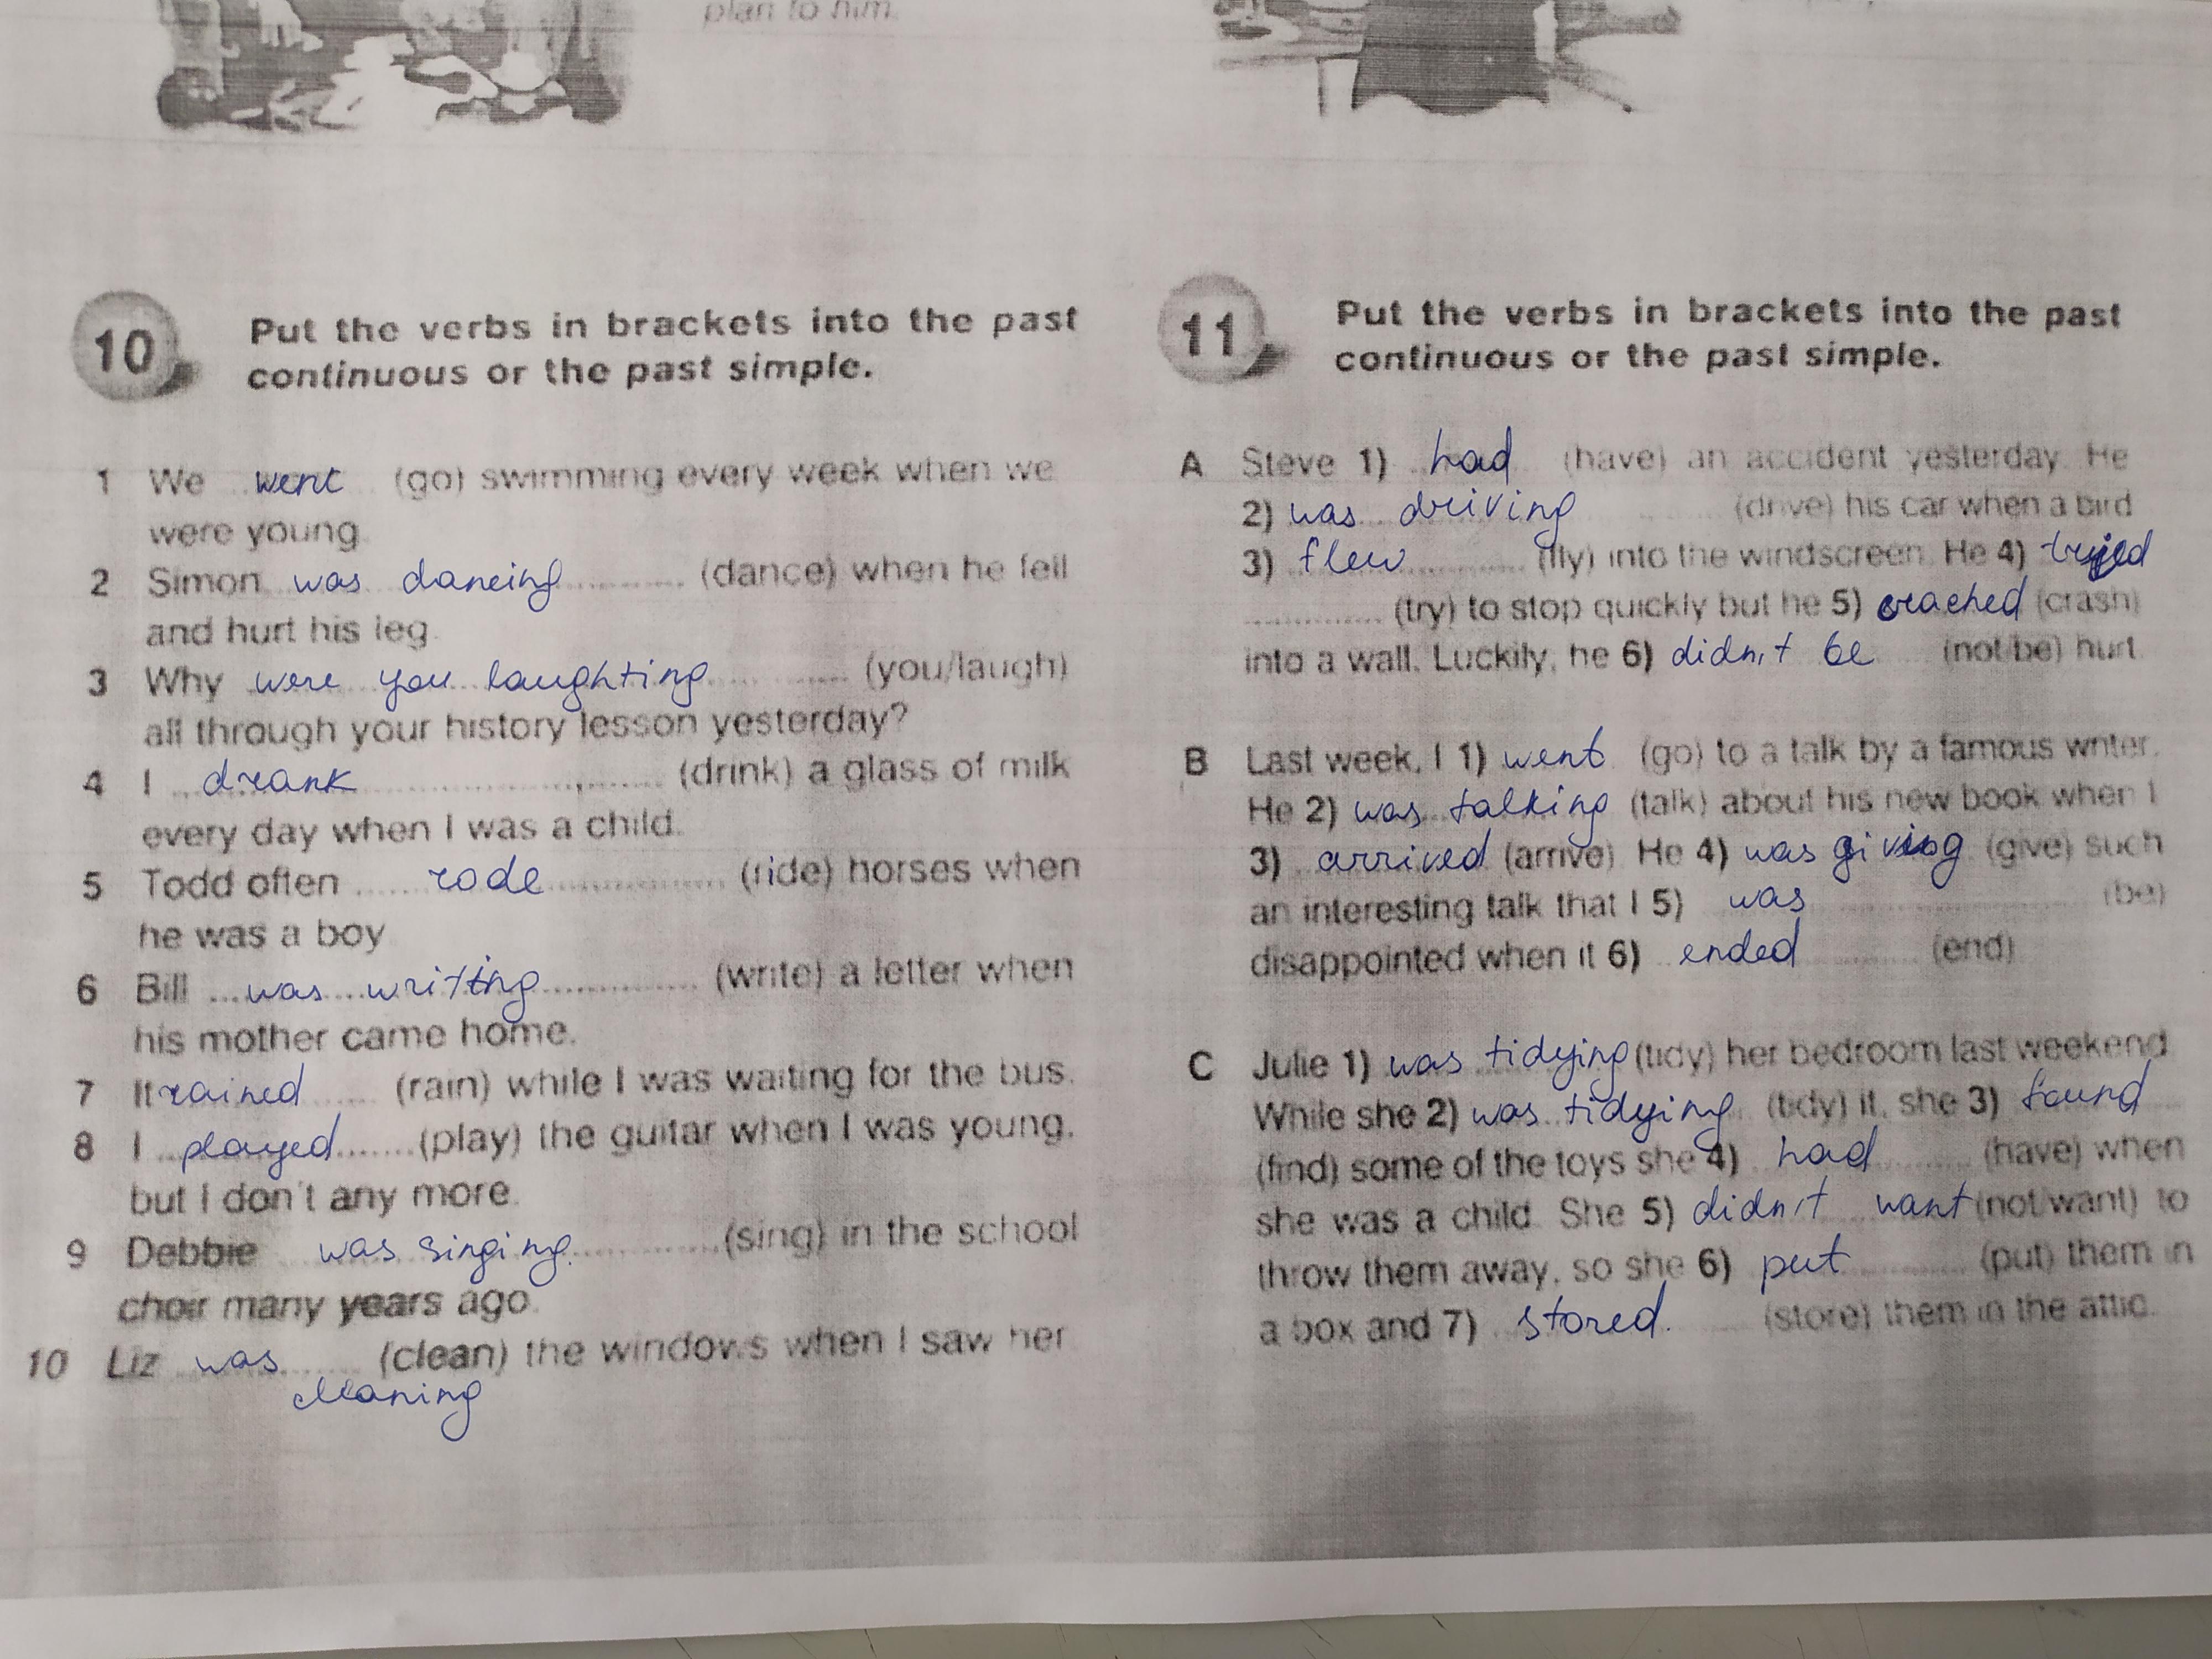 plan to him.
10 Put the verbs in brackets into the past
continuous or the past simple.
1 We went (go) swimming every week when we
were young.
2 Simon was dancing (dance) when he fell
and hurt his leg.
3 Why were you laughting (you/laugh)
all through your history lesson yesterday?
4 I drank (drink) a glass of milk
every day when I was a child.
5 Todd often rode (ride) horses when
he was a boy
6 Bill was writing (write) a letter when
his mother came home.
7 It rained (rain) while I was waiting for the bus.
8 I played (play) the guitar when I was young,
but I don't any more.
9 Debbie was singing. (sing) in the school
choir many years ago.
10 Liz was (clean) the windows when I saw her
cleaning
11 Put the verbs in brackets into the past
continuous or the past simple.
A Steve 1) had (have) an accident yesterday. He
2) was driving (drive) his car when a bird
3) flew (fly) into the windscreen. He 4)
(try) to stop quickly but he 5) crached (crash)
into a wall. Luckily, he 6) didn't be (not/be) hurt.
B Last week, I 1) went (go) to a talk by a famous writer.
He 2) was talking (talk) about his new book when I
3) arrived (arrive). He 4) was giving (give) such
an interesting talk that I 5) was (be)
disappointed when it 6) ended (end)
C Julie 1) was tidying (tidy) her bedroom last weekend.
While she 2) was tidying (tidy) it, she 3) found
(find) some of the toys she 4) had (have) when
she was a child. She 5) didn't want (not/want) to
throw them away, so she 6) put (put) them in
a box and 7) stored. (store) them in the attic.